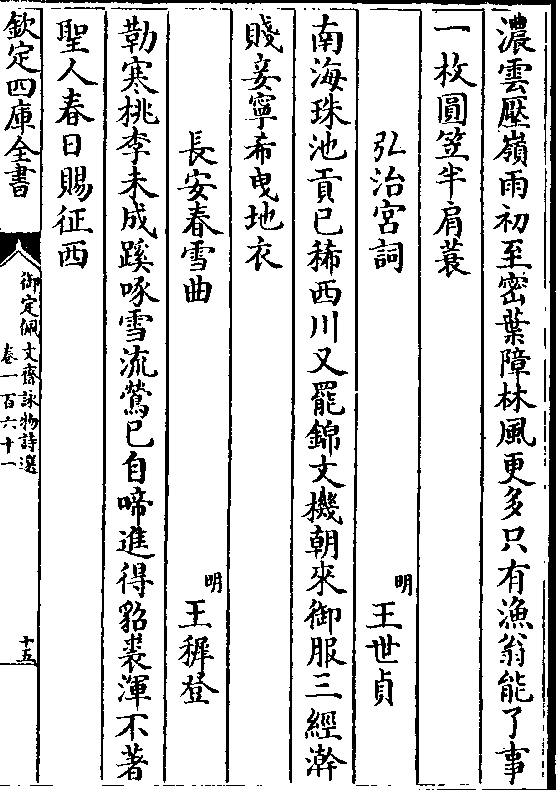 濃雲壓嶺雨初至密葉障林風更多只有漁翁能了事
一枚圓笠半肩蓑
弘治宮詞
明 王世貞
南海珠池貢已稀西川又罷錦文機朝來御服三經澣
賤妾寧希曳地衣
長安春雪曲
明 王穉登
勒寒桃李未成蹊啄雪流鶯已自啼進得貂裘渾不著
聖人春日賜征西
欽定四庫全書
御定佩文齋詠物詩選
卷一百六十一
十五